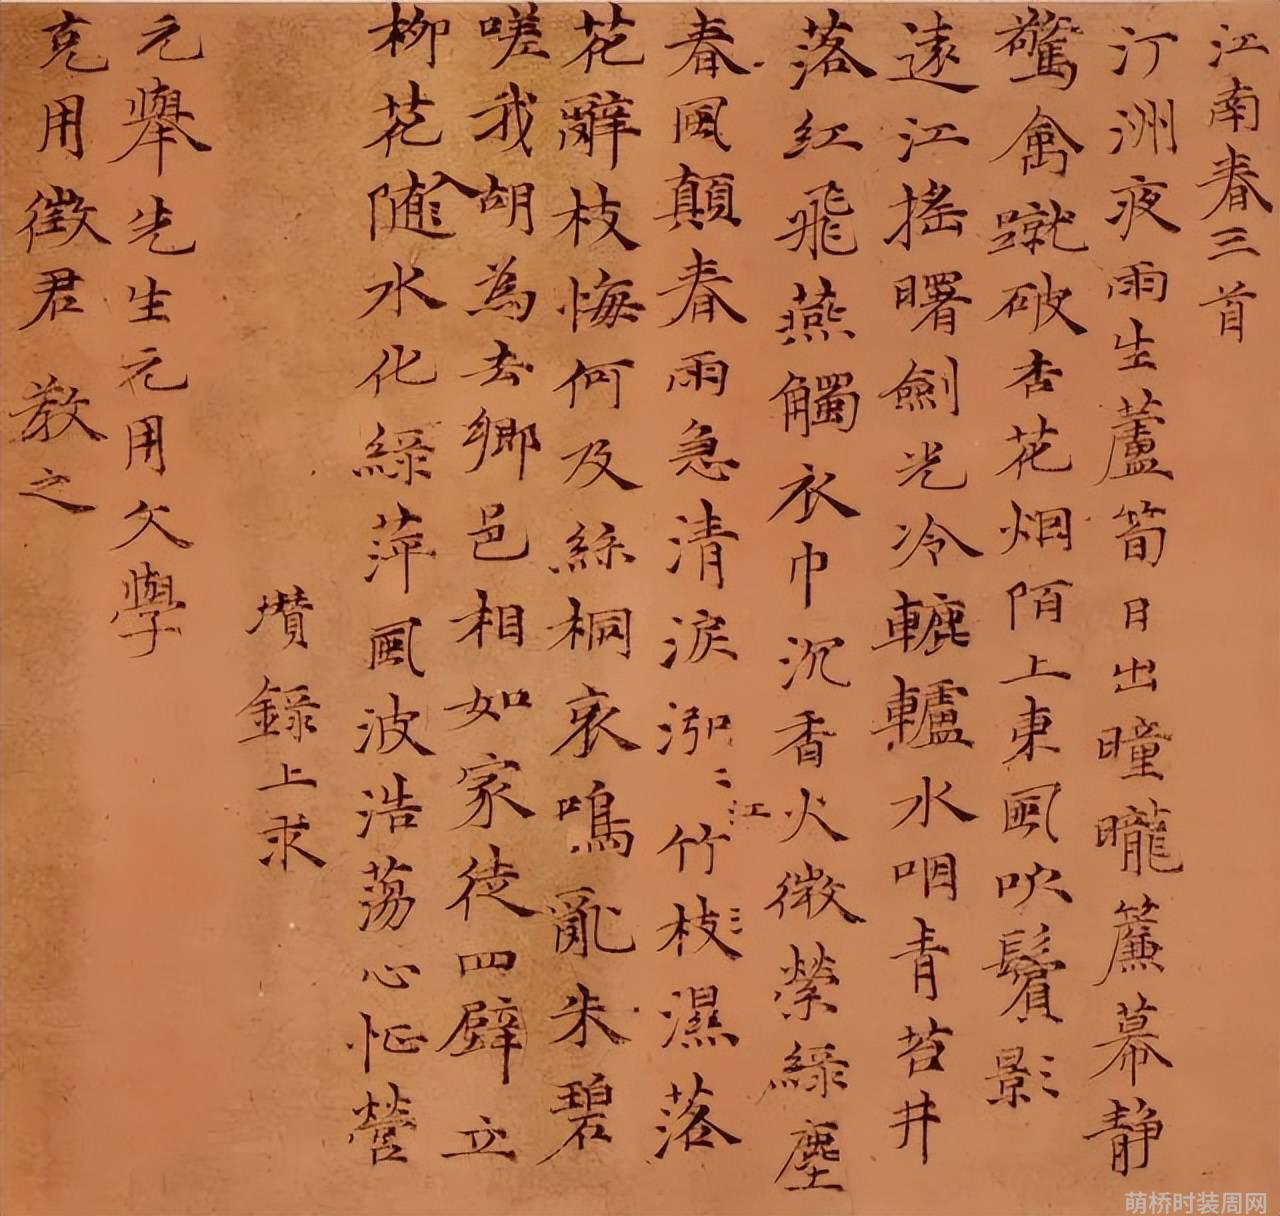 江南春三首
汀洲夜雨生蘆筍日出曈曨簾幕静
驚禽蹴破杏花烟陌上東風吹鬢影
遠江摇曙劍光冷轆轤水咽青苔井
落紅飛燕觸衣巾沉香火微縈綠塵
春風顛春雨急清淚泓泓江竹枝濕落
花辭枝悔何及絲桐哀鳴亂朱碧
嗟我胡為去鄉邑相如家徒四壁立
柳花入隨水化綠萍風波浩蕩心怔營
瓚錄上求
元舉先生元用文學
克用徵君 教之
萌桥时装周网